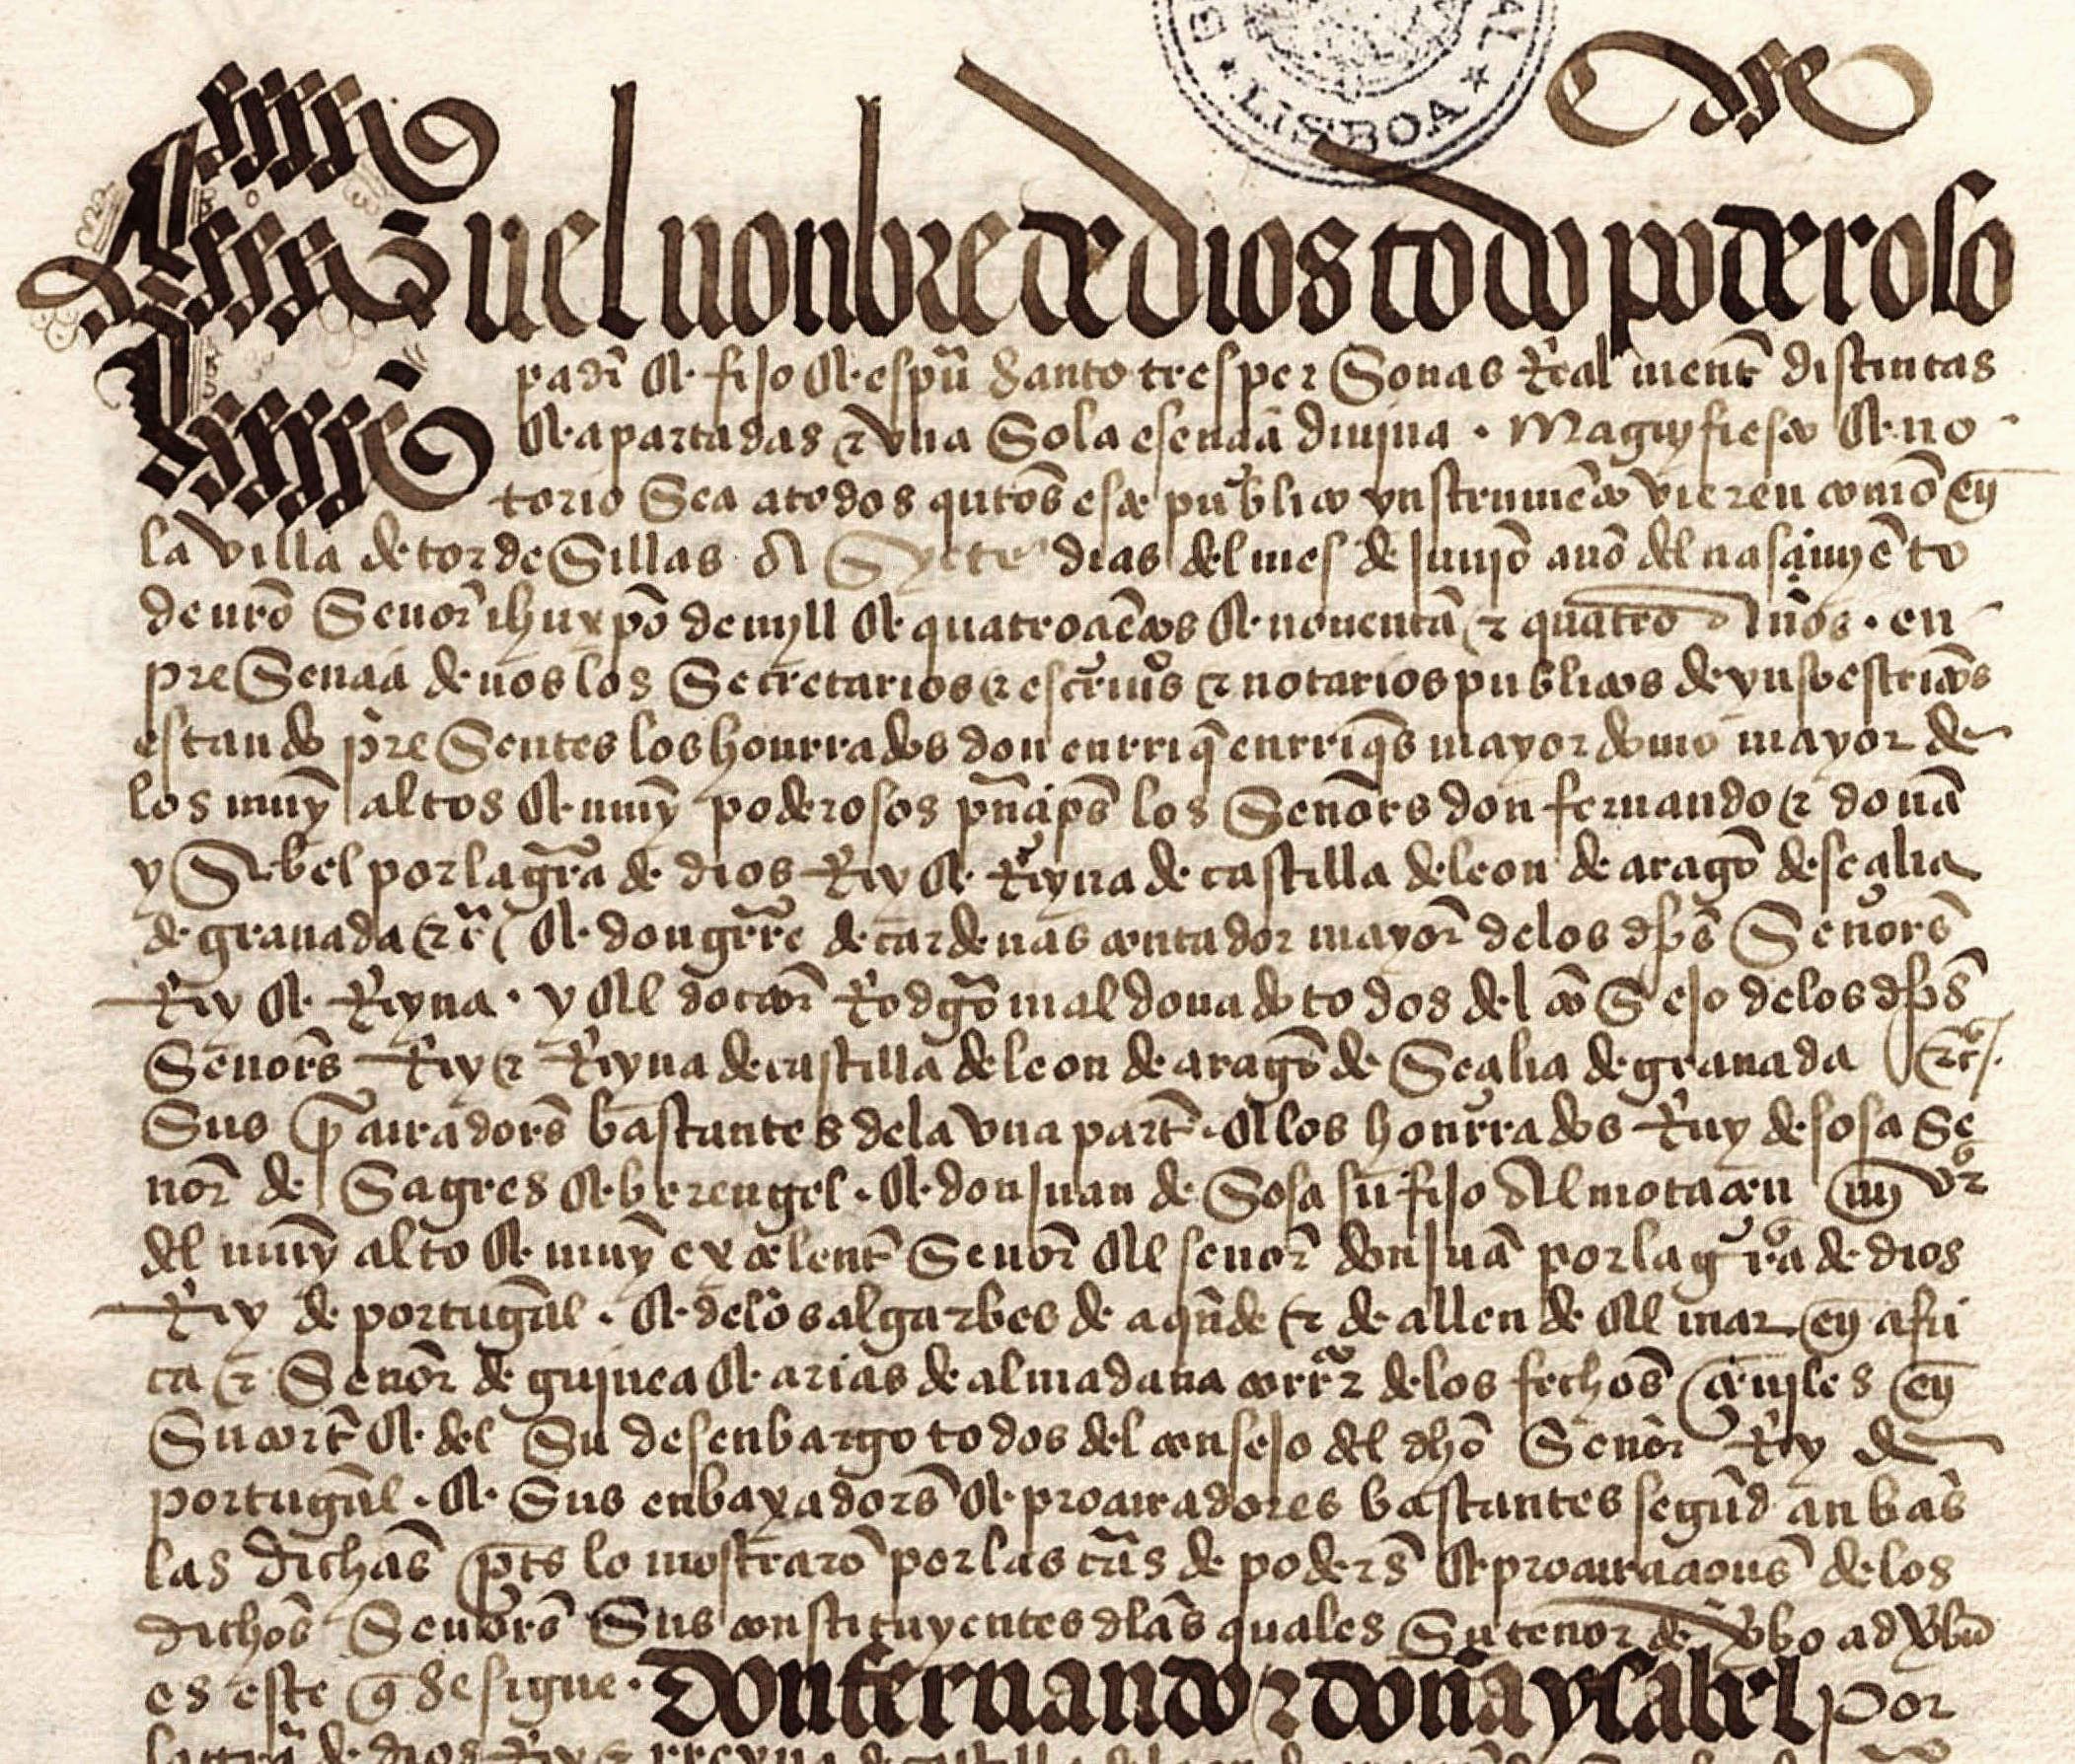 LISBOA
En el nonbre de dios todo poderoso
padr̃ & fijo & espũ santo tres personas Realment̃ distintas
& apartadas & vna sola esençia diujna. Magnyfiesto & no
torio sea a todos quãtos este publico ynstrumẽto vieren como en
la villa de tordesillas A syete dias del mes de junjo año del nasçimyẽto
de nr̃o señor ihu xp̃o de myll & quatroçiẽtos & nouenta & quatro años. en
presençia de nos los secretarios & escriuãos & notarios publicos de yuso escriptos
estando presentes los honrrados don enrriq̃ enrriq̃s mayordomo mayor de
los muy altos & muy poderosos prinçipes los señores don fernando & doña
ysabel por la grã de dios Rey & Reyna de castilla de leon de aragõ de seçilia
de granada &c̃ & don gr̃re de cardenas contador mayor de los dhõs señores
Rey & Reyna. y el doctor Rodgõ maldonado todos del cõsejo de los dhõs
señores Rey & Reyna de castilla de leon de aragõ de seçilia de granada &c̃.
sus p̃curadores bastantes de la vna part̃. & los honrrados Ruy de sosa se
ñor de sagres & berengel. & don juan de sosa su fijo almotaçen mayor
del muy alto & muy exçelent̃ señor el señor don juã por la grã de dios
Rey de portugãl. & de los algarbes de aquẽde & de allende el mar en afri
ca & señor de guinea & arias de almadana corr̃r de los fechos çeujles en
su cort̃ & del su desenbargo todos del consejo del dhõ señor Rey de
portugãl. & sus enbaxadores & procuradores bastantes segũd anbas
las dichas p̃tes lo mostrarõ por las cr̃as de poderes & procuraçiones de los
dichos señores sus constituyentes dlas quales su tenor de ṽbo ad ṽbũ
es este q̃ se sigue. Don fernando & doña ysabel por
la grã de dios Rey & rreyna de castilla de leon de